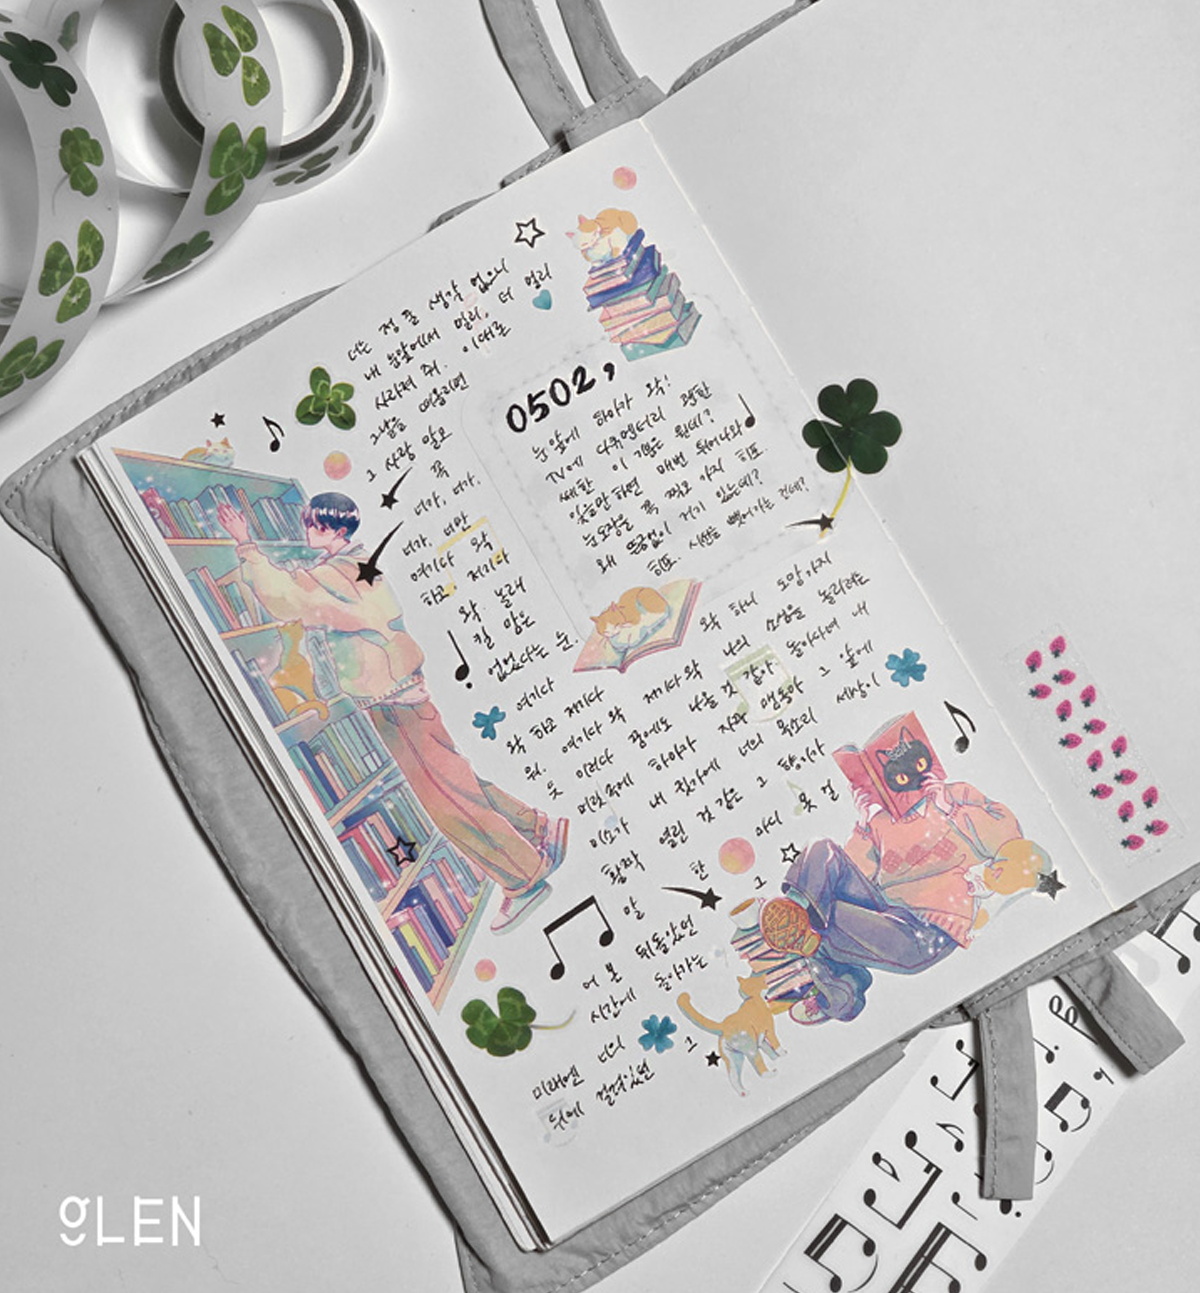 너는 정 줄 생각 없으니
내 눈앞에서 멀리, 더 멀리
사라져 줘. 이대로
그날을 떠올리면
그 사랑 말고
꼭
너가, 너가,
너가, 너만
여기다 왁
하고, 저기다
왁. 놀래
킬 맘은
없었다는 눈.
0502,
눈앞에 하야가 왁!
TV에 다큐멘터리 괜한
쎄한 이 기분은 뭔데?
잊을만 하면 매번 튀어나와
눈도장을 꼭 찍고 가지 히포.
왜 뜬금없이 거기 있는데?
히포. 시선을 뺏어가는 건데?
왁 하니 도망가지
여기다 나의 소심을 놀리려는
왁 하고 저기다 저기다 왁 것 같아. 돌아다녀 내
워. 여기다 왁 나올 그 앞에
듯 이러다 꿈에도 자꾸 맴돌아 세상이
머릿속에 하야가 너의 목소리
미소가 내 창가에 향기가
활짝 열린 것 같은 그 못 걸
한 아디
말 그
어 본 뒤돌았던
시간에 돌아가는
너의 그
미래엔 걸려있던
위에
gLEN